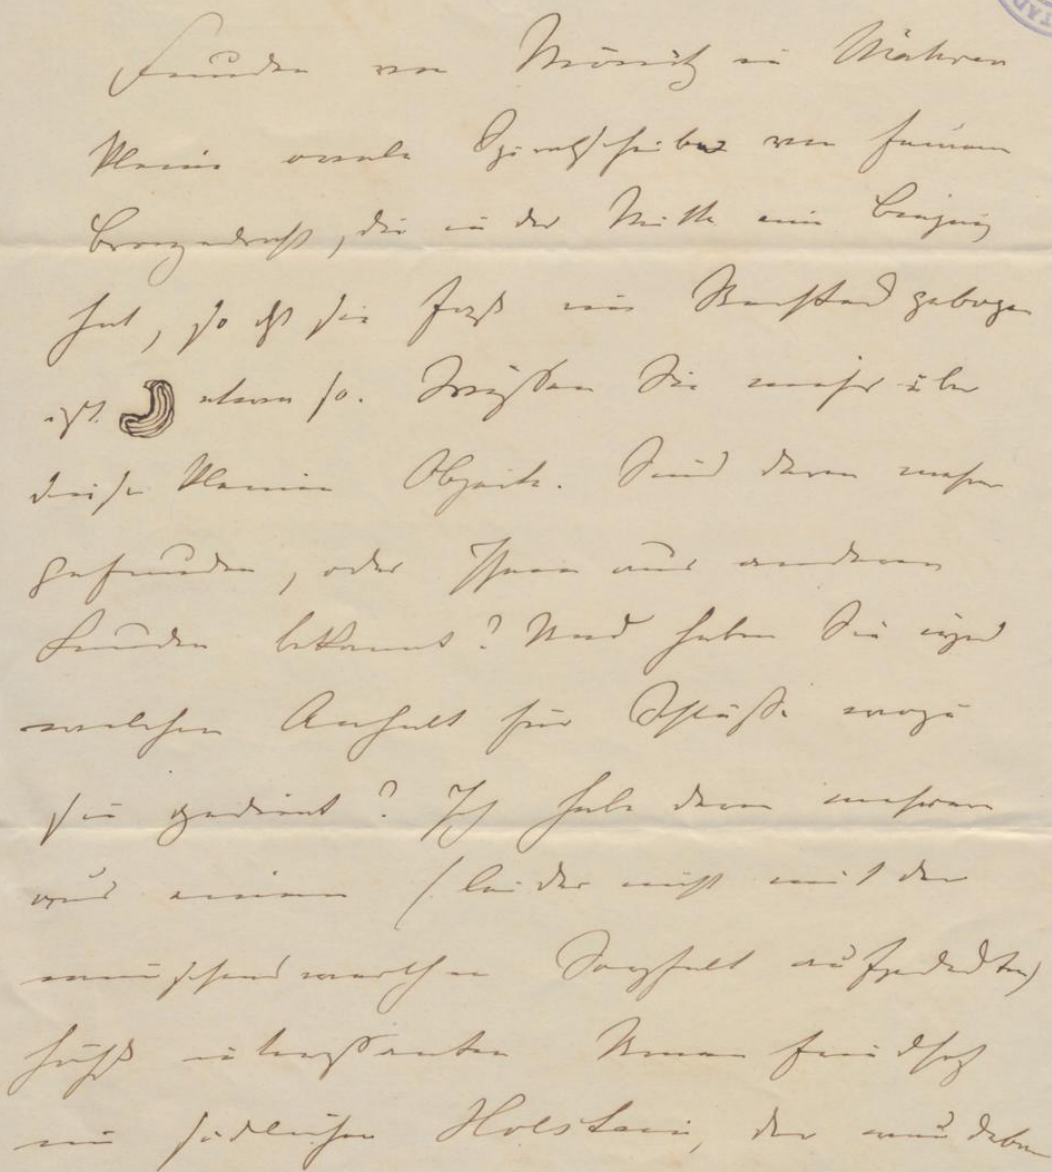 Funden von Mönitz in Mähren
kleine ovale Spiralscheiben von feinem
Bronzedraht, die in der Mitte eine Biegung
hat, so daß sie fast ein Viereck gebogen
ist. etwa so. Wissen Sie mehr über
diese kleinen Objecte. Sind deren mehr
gefunden, oder Ihnen aus anderen
Funden bekannt? Und haben Sie irgend
welchen Anhalt für Schlüsse wozu
sie gedient? Ich habe deren mehrere
aus einem (leider nicht mit der
wünschenswerthen Sorgfalt aufgedeckten)
höchst interessanten Urnenfriedhof
im südlichen Holstein, der